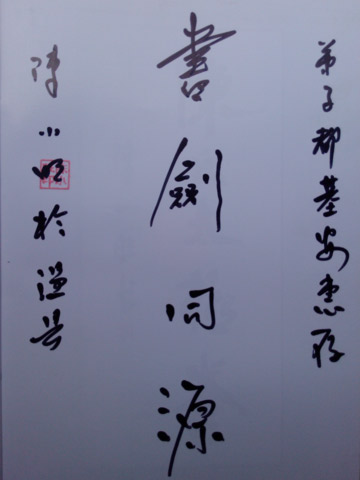 弟子都基安惠存
書劍同源
陳小旺於溫县